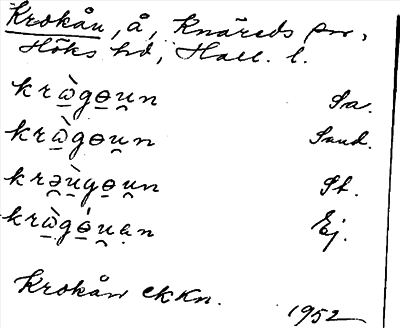 Krokån, å, Knäreds sn,
Höks hd, Hall. l.
krὼ̠gɵ̠u̯n Sa.
krὼ̠gɵu̯n Sand.
krə̯ùgɵ̠u̯n St.
krὼ̠gɵ̠́u̯ən Ej.
Krokån ekkn.
1952